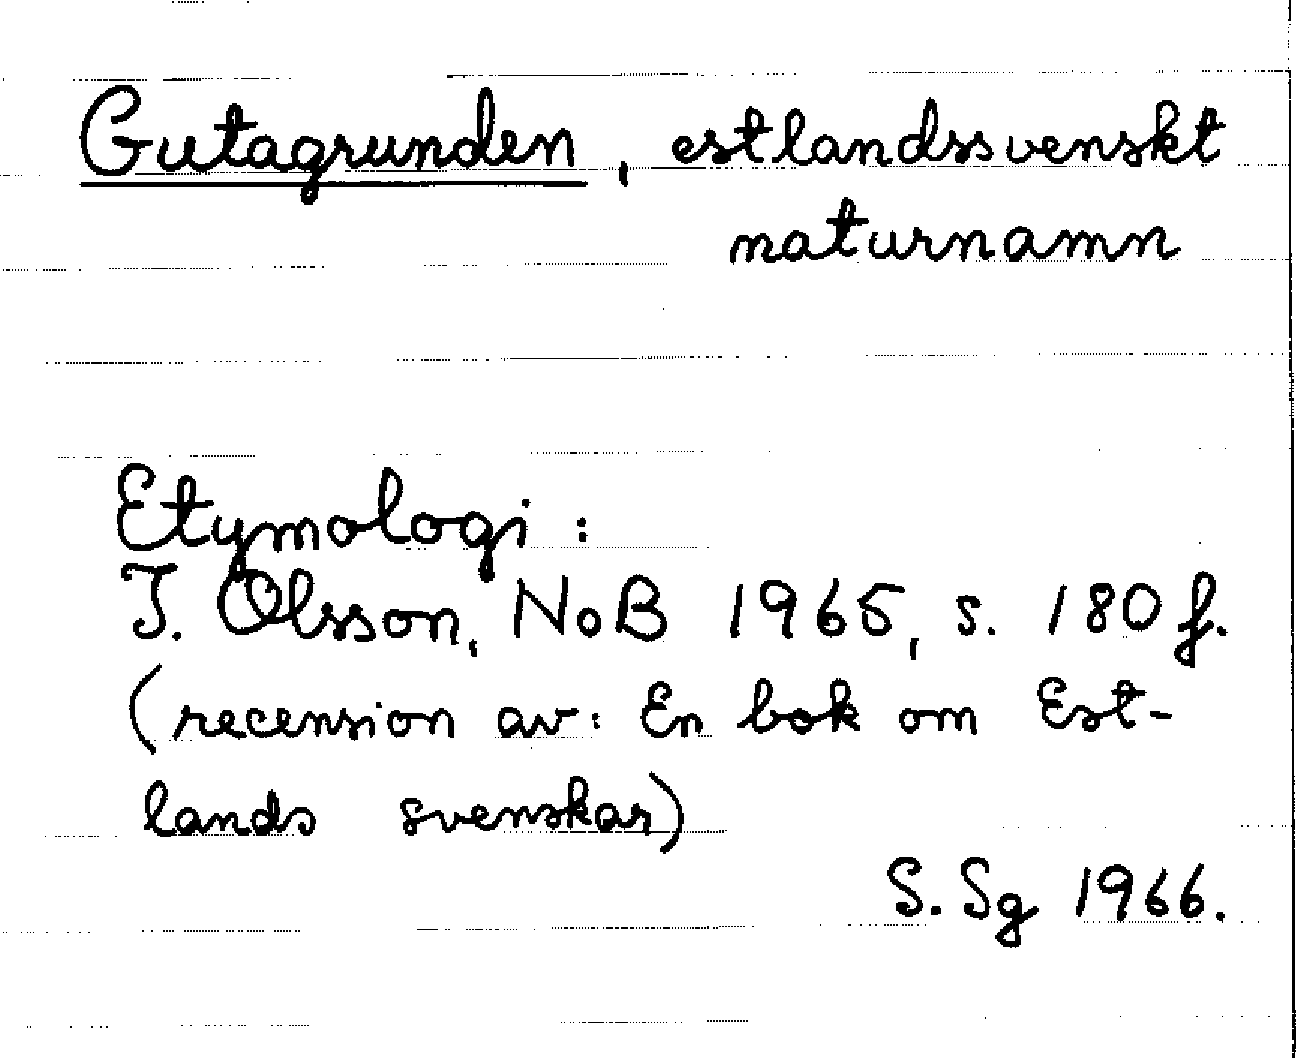 Gutagrunden, estlandssvenskt
naturnamn
Etymologi:
I. Olsson, NoB 1965, s. 180 f.
(recension av: En bok om Est-
lands svenskar)
S. Sg 1966.